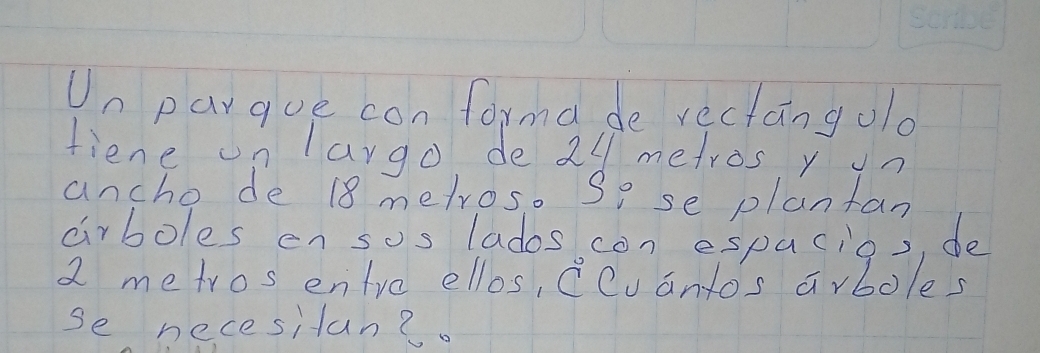 Scribe
Un parque con forma de rectángulo
tiene un largo de 24 metros, y un
ancho de 18 metros. Si se plantan
árboles en sus lados con espacios, de
2 metros entre ellos, ¿Cuántos árboles
se necesitan?.